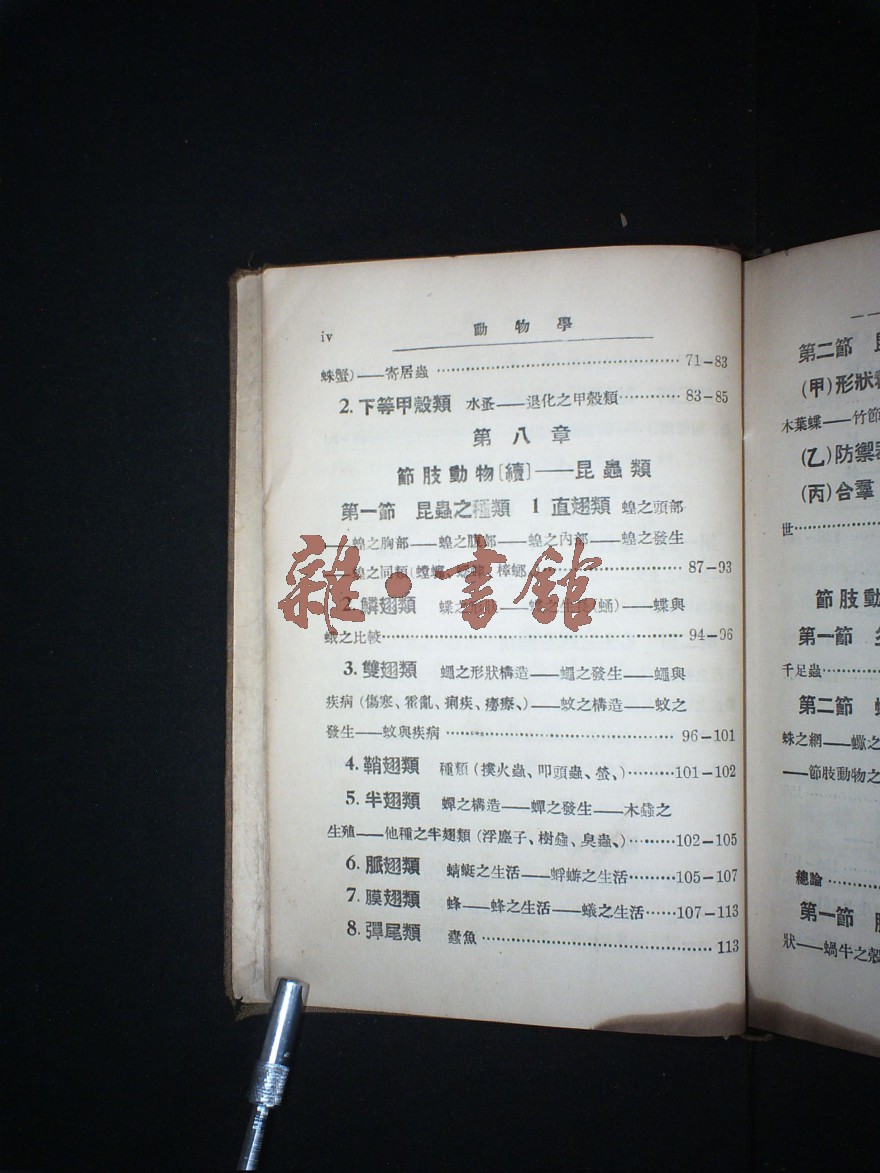 iv 動物學
蛛蟹)——寄居蟲 71-83
2. 下等甲殼類 水蚤——退化之甲殼類 83-85
第八章
節肢動物〔續〕——昆蟲類
第一節 昆蟲之種類 1 直翅類 蝗之頭部
——蝗之胸部——蝗之腹部——蝗之內部——蝗之發生
——蝗之同類(螳螂、蟋蟀、樟螂 87-93
2. 鱗翅類 蝶之 蝶之生長(蛹)——蝶與
蛾之比較 94-96
3. 雙翅類 蠅之形狀構造——蠅之發生——蠅與
疾病(傷寒、霍亂、痢疾、癆瘵、)——蚊之構造——蚊之
發生——蚊與疾病 96-101
4. 鞘翅類 種類(撲火蟲、叩頭蟲、螢、) 101-102
5. 半翅類 蟬之構造——蟬之發生——木蝨之
生殖——他種之半翅類(浮塵子、樹蝨、臭蟲、) 102-105
6. 脈翅類 蜻蜓之生活——蜉蝣之生活 105-107
7. 膜翅類 蜂——蜂之生活——蟻之生活 107-113
8. 彈尾類 蠹魚 113
雜·書館
第二節
(甲)形狀
木葉蝶——竹節
(乙)防禦
(丙)合羣
世
節肢動
第一節
千足蟲
第二節
蛛之網——蠍之
——節肢動物之
總論
第一節
狀——蝸牛之殼